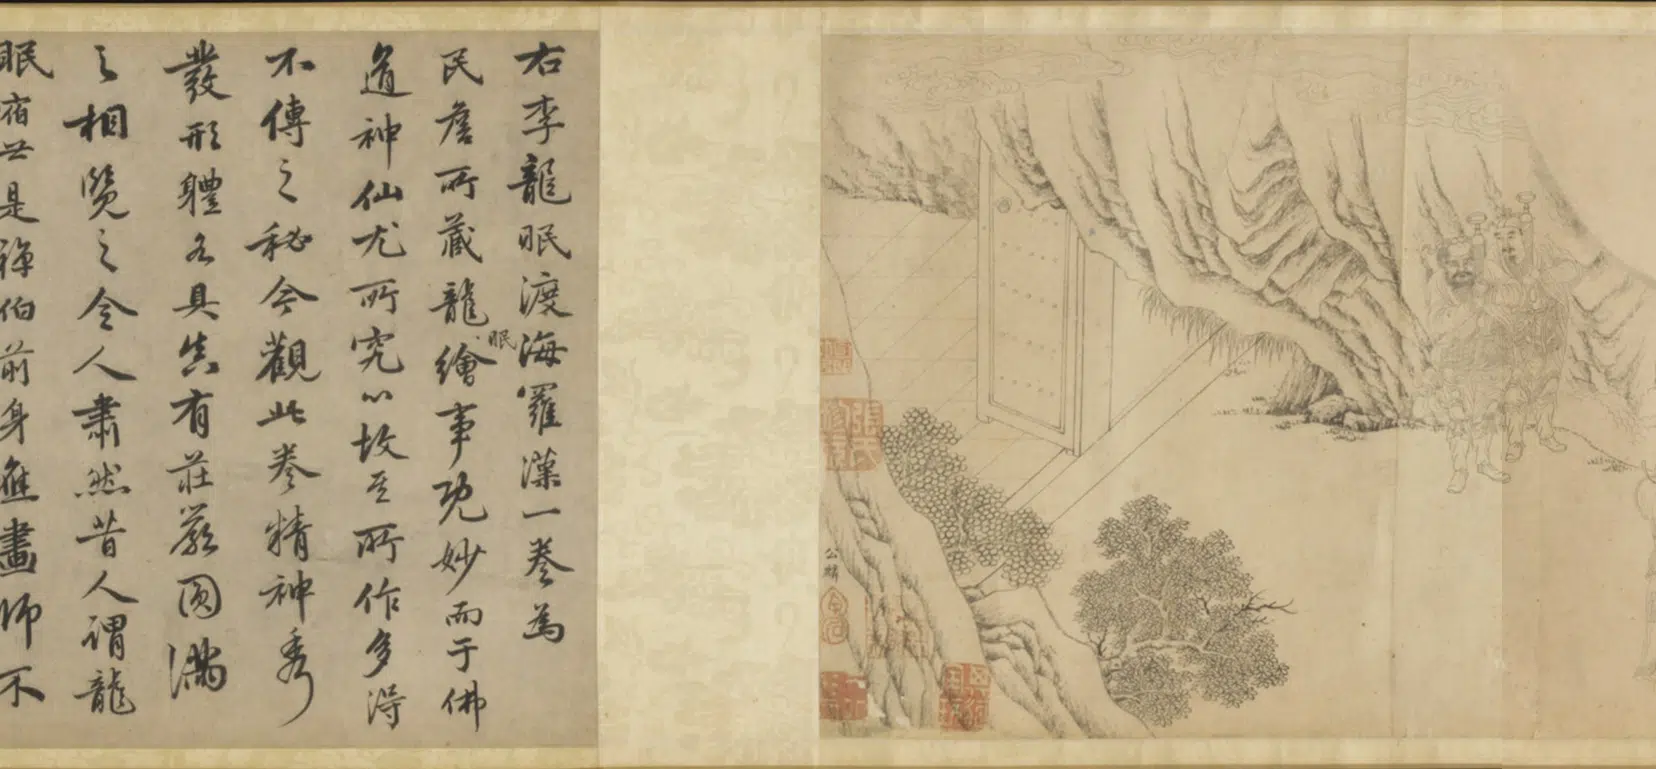 右李龍眠渡海羅漢一卷為
民詹所藏龍眠繪事既妙而于佛
道神仙尤所究心故其所作多得
不傳之秘今觀此卷精神秀
發形體各具真有莊嚴圓滿
之相覽之令人肅然昔人謂龍
眠宿世是禪伯前身應畫師不
公麟